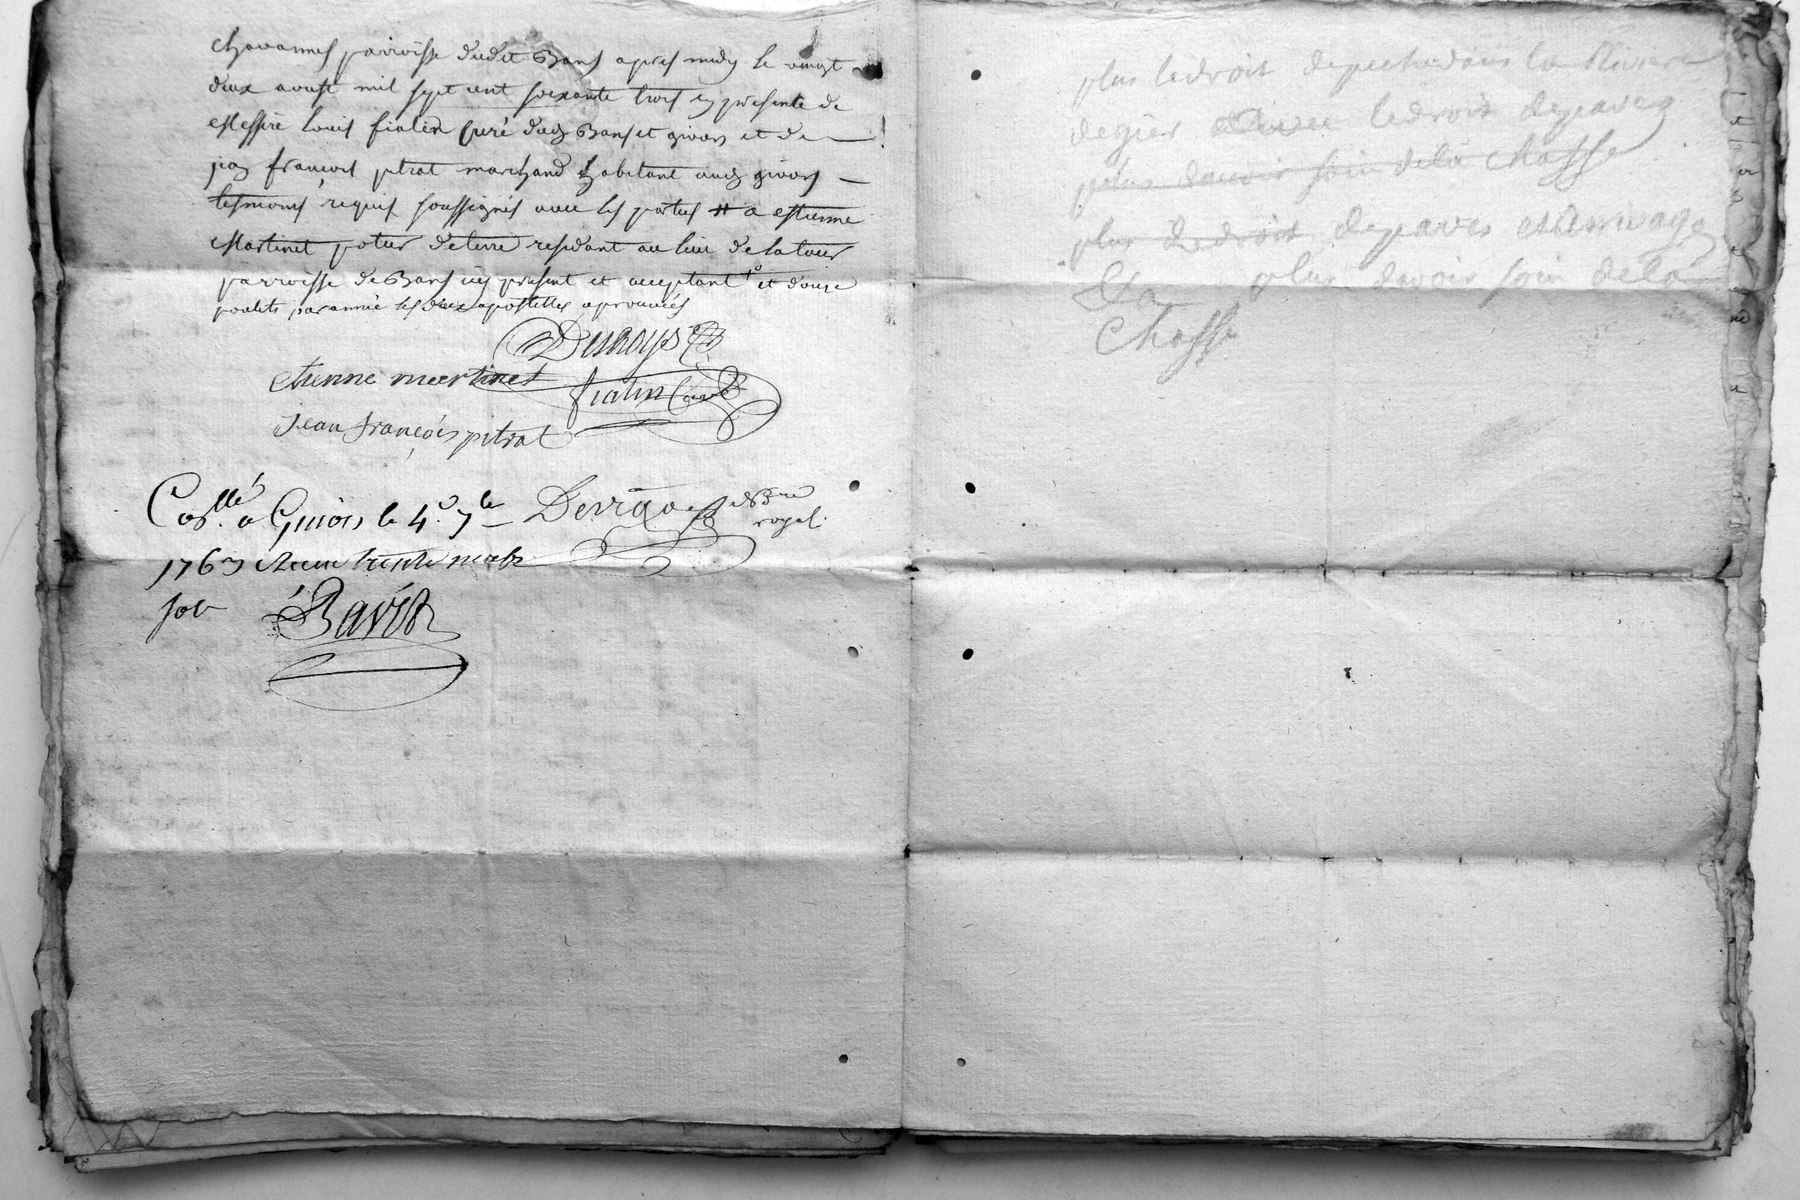 chavannes parroisse dudit Bans apres midy le vingt
deux aoust mil sept cent soixante trois en presence de
Messire Louis fialin curé dud Bans et givors et de
jean francois pitrat marchand habitant aud givors
tesmoins requis soussignés avec les parties # a estienne
Martinet potier de terre residant au lieu de la tour
parroisse de Bans icy present et acceptant et douze
poulets par année les deux apostilles aprouvées
etienne meertinet
fialin Curé
jean françois pitrat
Con.llé a Givors le 4.e 7.bre
royal
1763 Recu trente neuf
sols
plus le droit de peche dans la Riviere
de gier le droit depaves
plus davoir soin de la chasse
plus le droit depaves et
plus davoir soin de la
Chasse